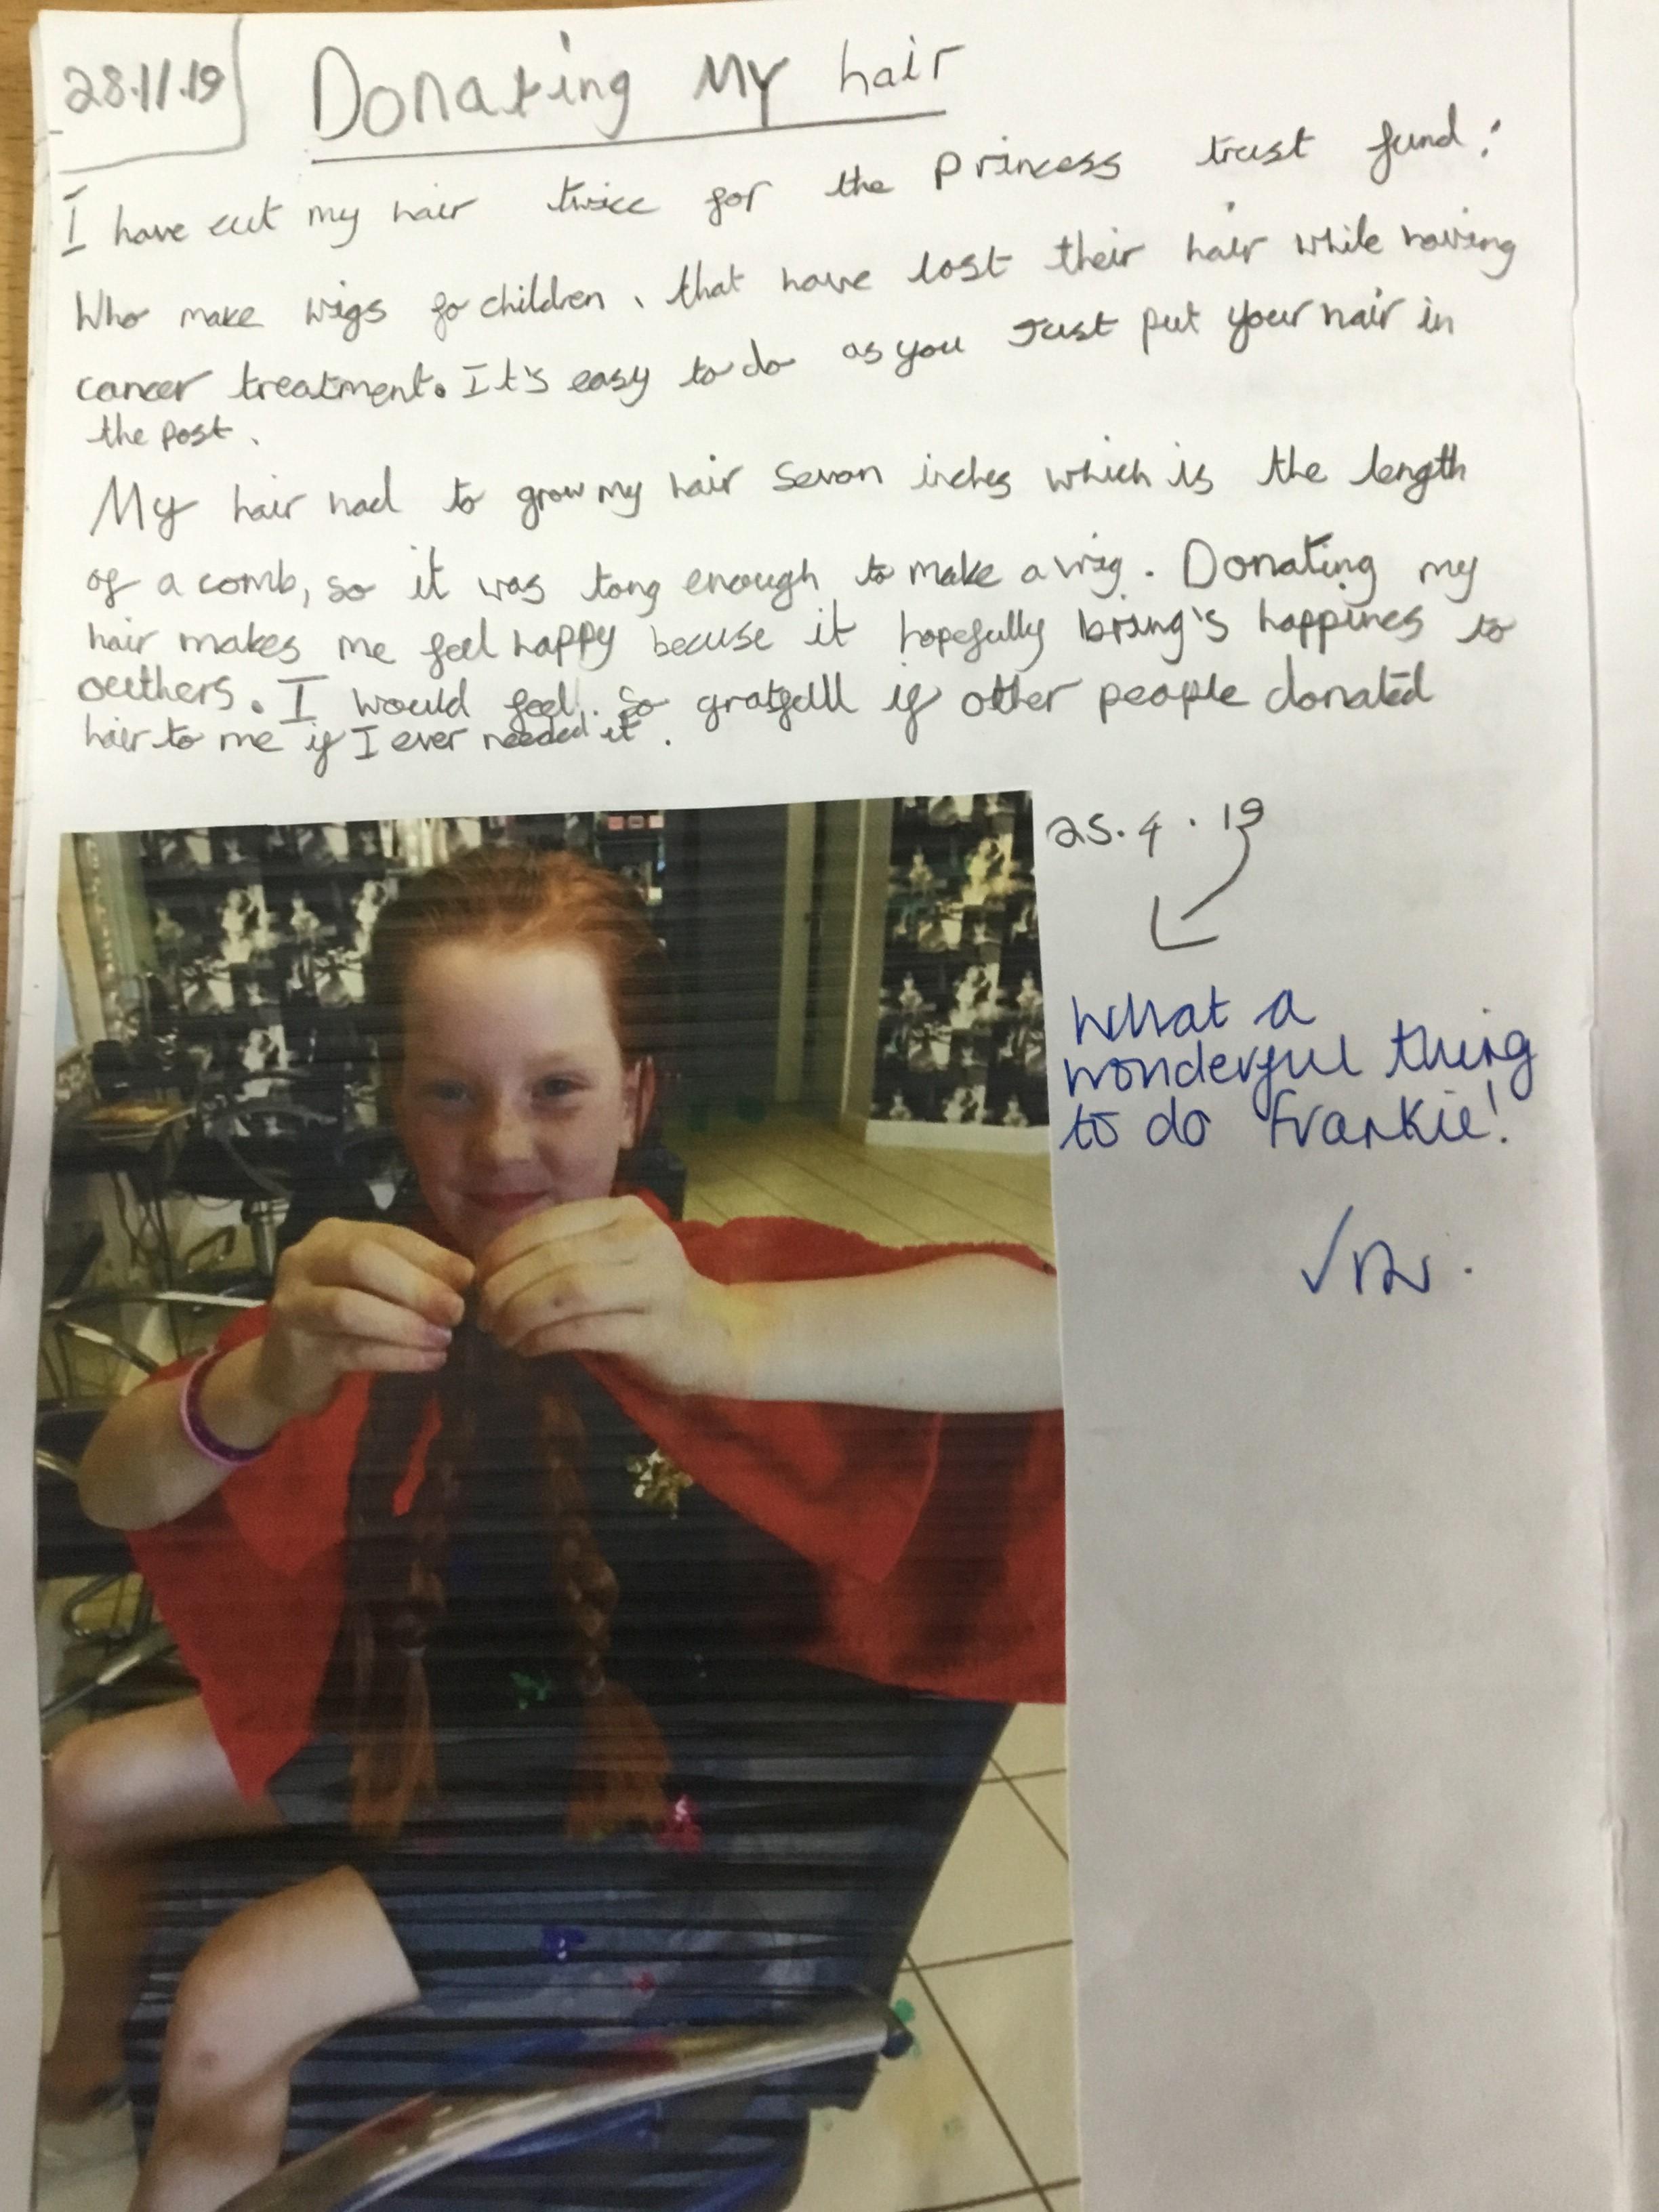 28.11.19
Donating My hair
I have cut my hair twice for the Princess trust fund:
Who make wigs fo children, that have lost their hair while having
cancer treatment. It's easy to do as you Just put your hair in
the post.
My hair had to grow my hair Sevan inches which is the length
of a comb, so it was long enough to make a wig. Donating my
hair makes me feel happy becuse it hopefully bring's happines to
outhers. I would feel so gratfull if other people donated
hair to me if I ever needed it.
25.4.19
What a
wonderful thing
to do Frankie!